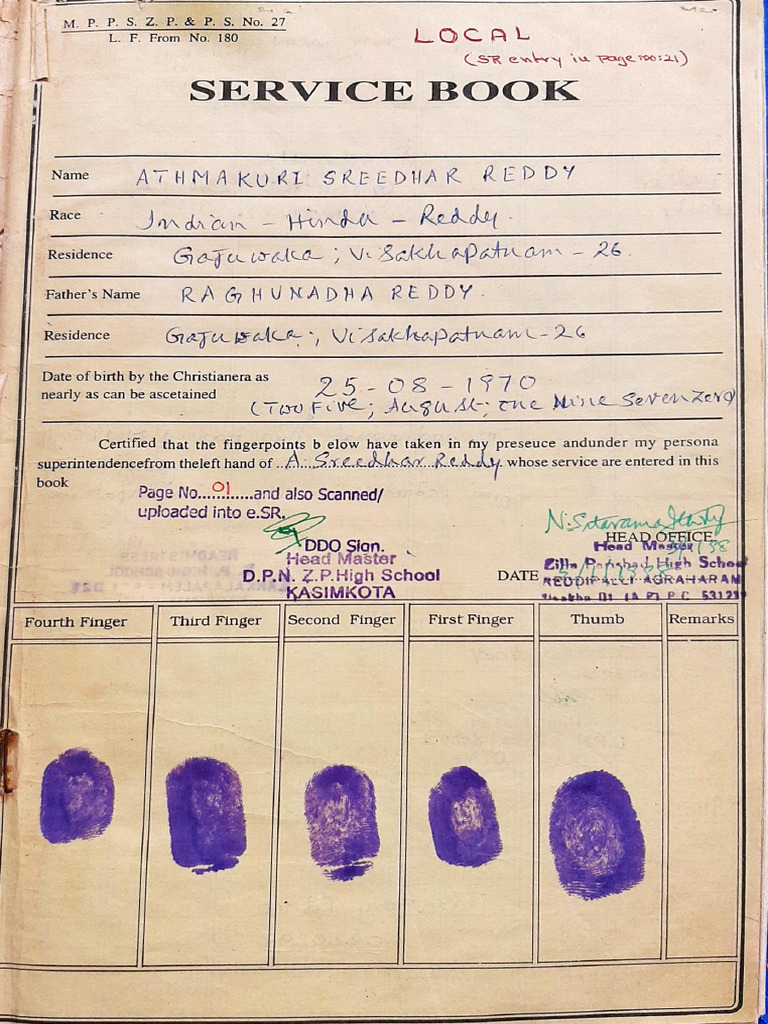 M. P. P. S. Z. P. & P. S. No. 27
L. F. From No. 180
LOCAL
(SR entry in Page no: 21)
SERVICE BOOK
Name ATHMAKURI SREEDHAR REDDY
Race Indian - Hindu - Reddy.
Residence Gajuwaka ; Visakhapatnam - 26.
Father's Name RAGHUNADHA REDDY.
Residence Gajuwaka ; Visakhapatnam - 26
Date of birth by the Christianera as
nearly as can be ascetained
25 - 08 - 1970
(Two Five ; August ; one Nine Seven Zero)
Certified that the fingerpoints b elow have taken in my preseuce andunder my persona
superintendencefrom theleft hand of A. Sreedhar Reddy whose service are entered in this
book
Page No. 01 and also Scanned/
uploaded into e.SR.
DDO Sign.
Head Master
D.P.N. Z.P.High School
KASIMKOTA
HEAD OFFICE
Head Master
Zilla Parishad High School
DATE
REDDIPALLI AGRAHARAM
Fourth Finger Third Finger Second Finger First Finger Thumb Remarks